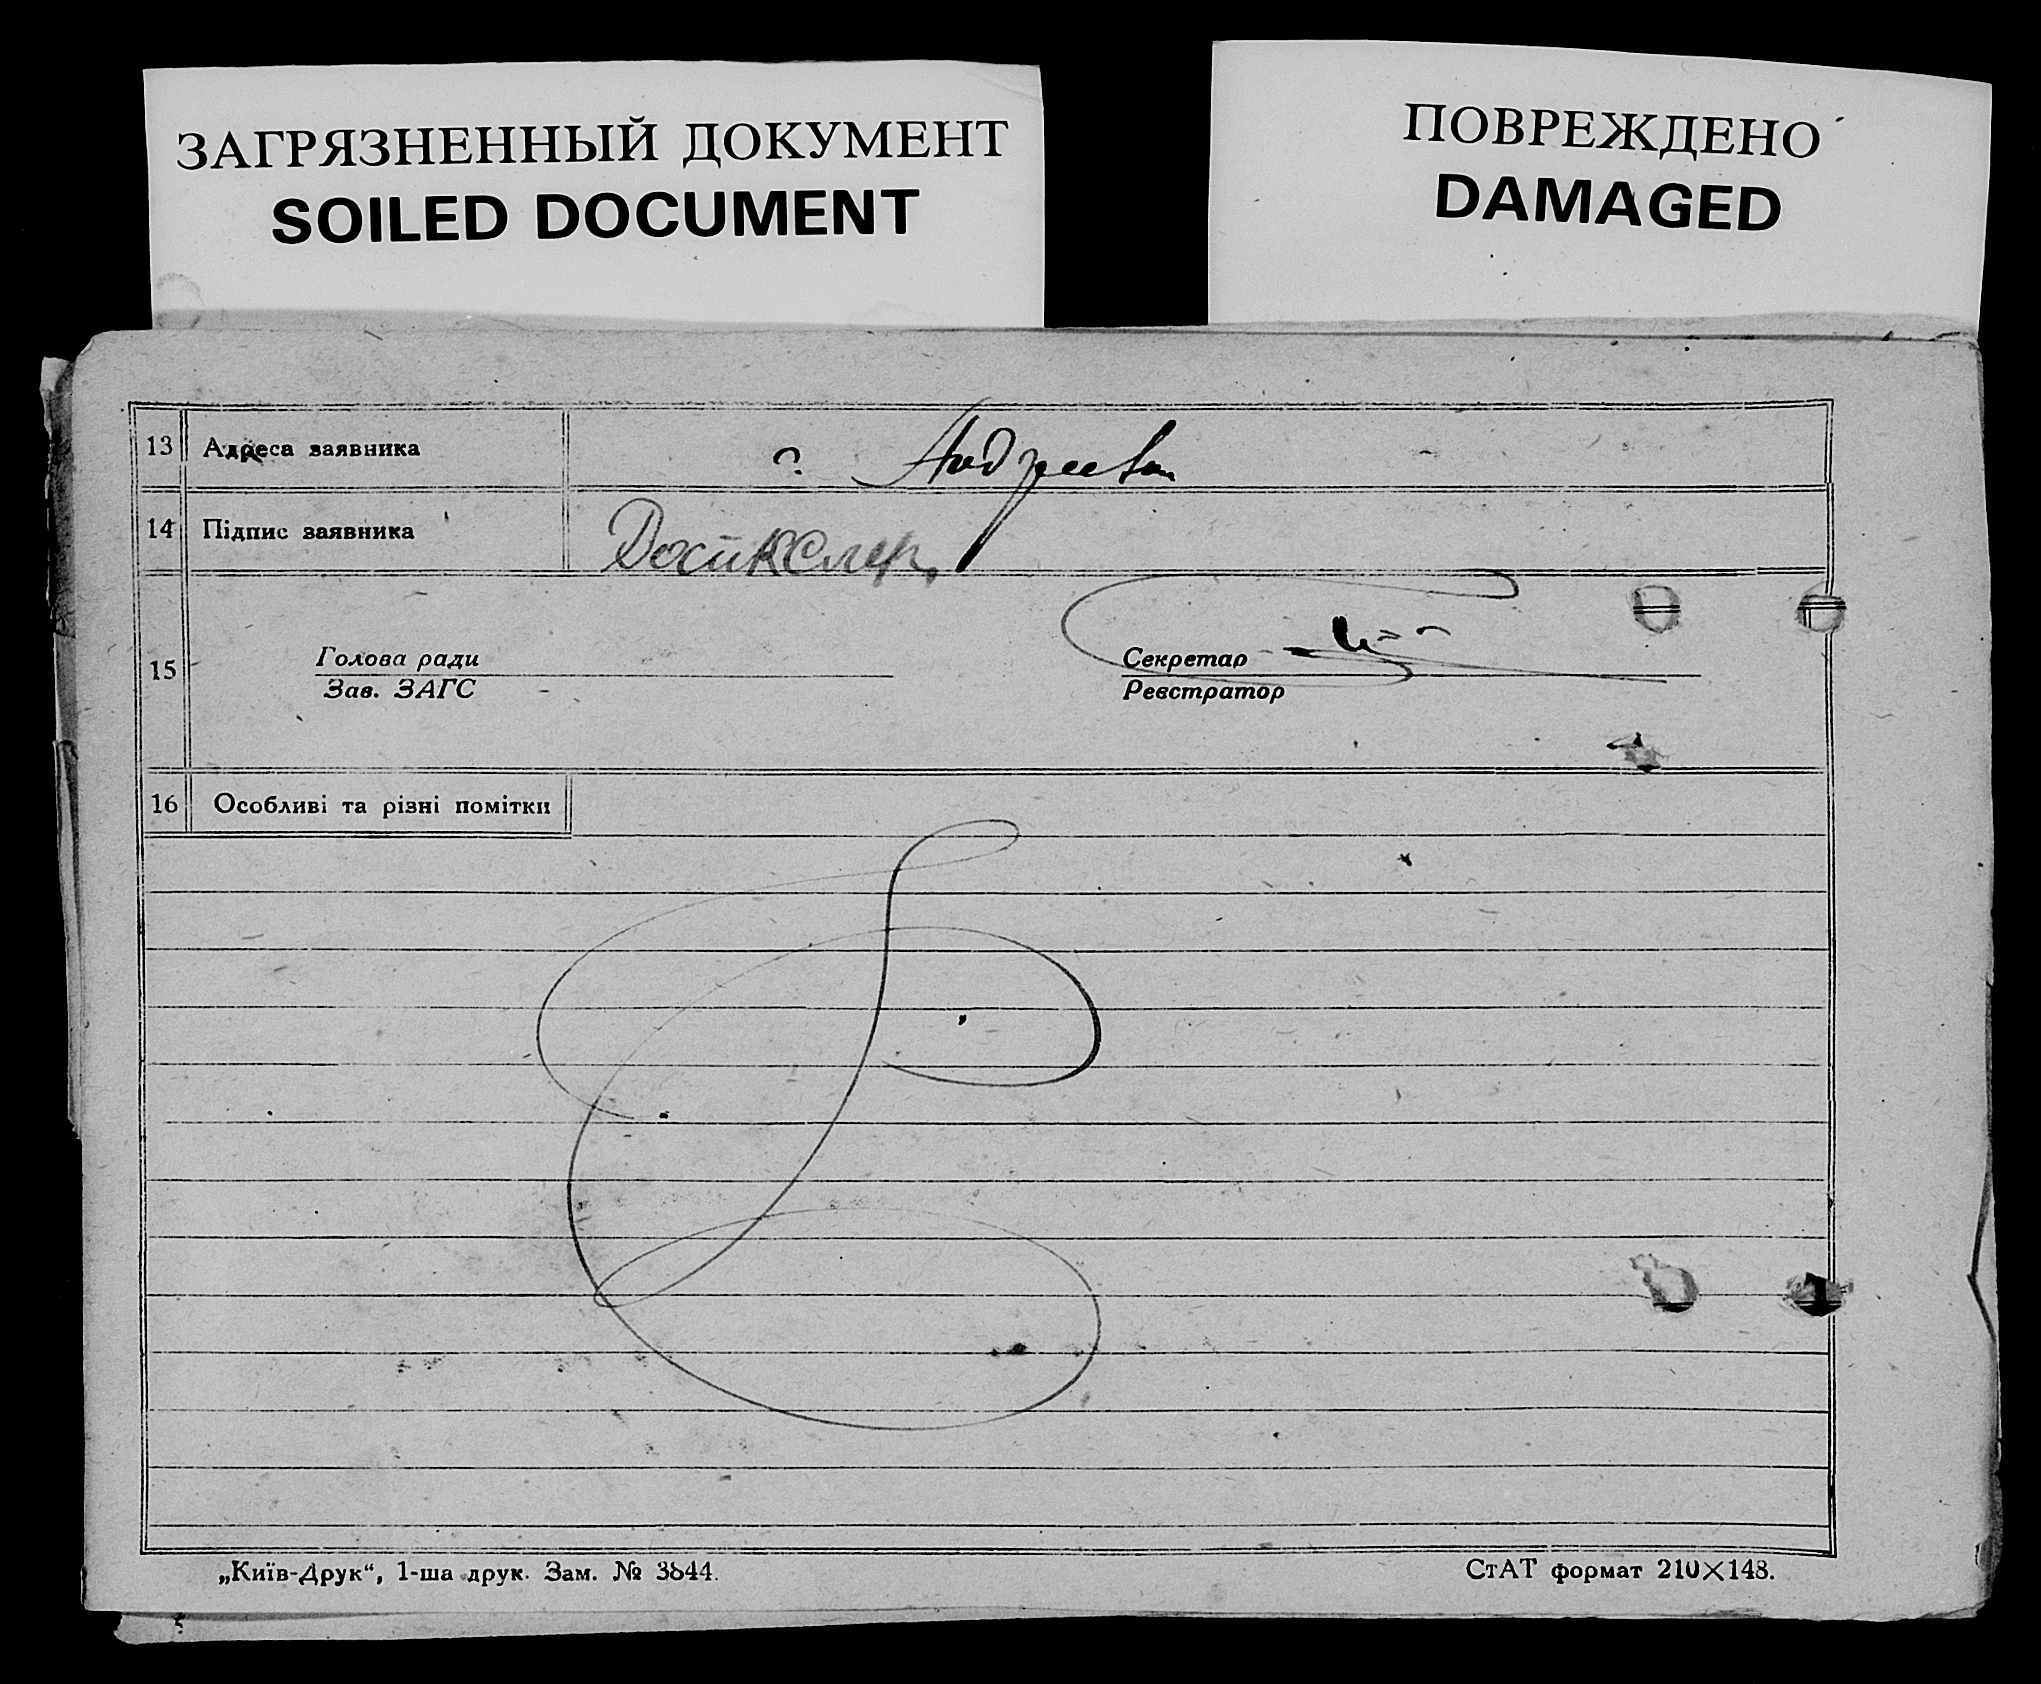 ЗАГРЯЗНЕННЫЙ ДОКУМЕНТ
SOILED DOCUMENT
ПОВРЕЖДЕНО
DAMAGED
13 Адреса заявника
14 Підпис заявника
15 Голова ради Секретар
Зав. ЗАГС Реєстратор
16 Особливі та різні помітки
„Київ-Друк“, 1-ша друк. Зам. № 3844. СтАТ формат 210×148.